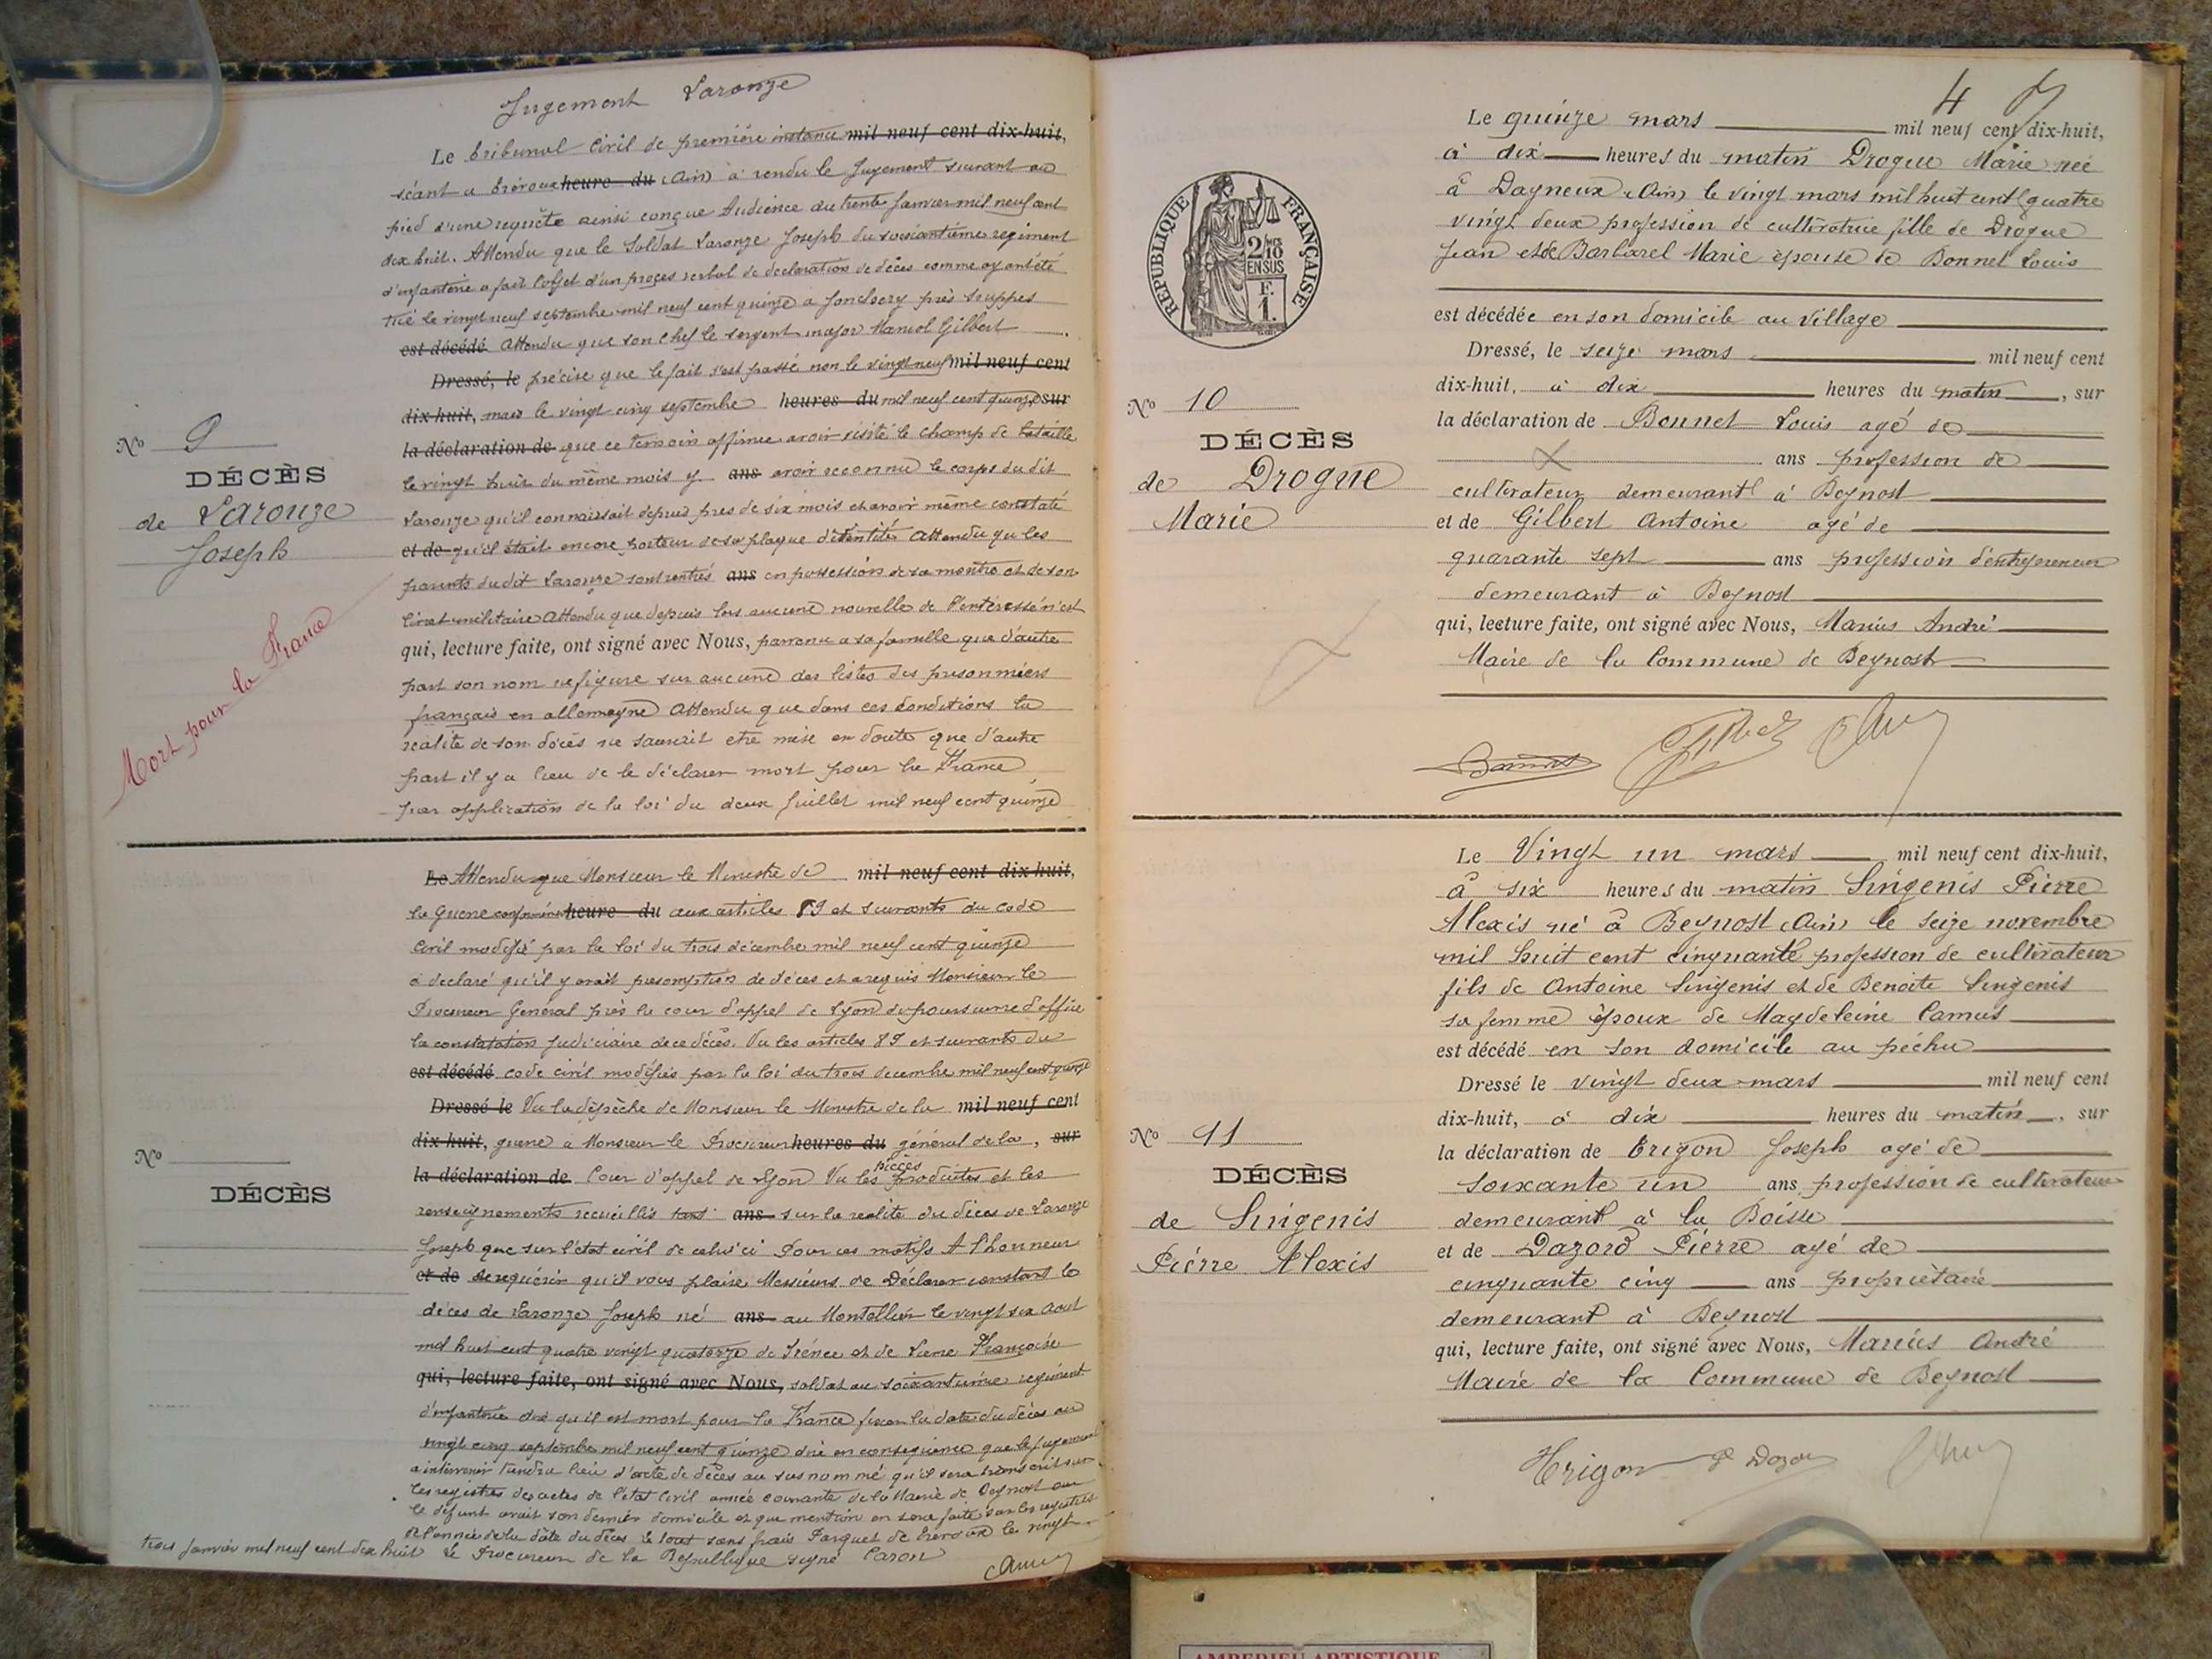 Jugement Laronze
Le tribunal Civil de première instance mil neuf cent dix-huit,
séant a Trévoux heure du (Ain) a rendu le Jugement suivant au
pied d'une requête ainsi conçue Audience du trente Janvier mil neuf cent
dix huit. Attendu que le Soldat Laronze Joseph du soixantième regiment
d'infanterie a fait l'objet d'un procès verbal de declaration de décès comme ayant été
tué le vingt neuf septembre mil neuf cent quinze a Jonchery près Suippes
est décédé Attendu que son chef le sergent major Gilbert
Dressé, le précise que le fait s'est passé non le vingt neuf mil neuf cent
dix-huit, mais le vingt cinq septembre heures du mil neuf cent quinze, sur
la déclaration de que ce temoin affirme avoir visité le champ de bataille
le vingt huit du même mois y ans avoir reconnu le corps du dit
Laronze qu'il connaissait depuis près de six mois et avoir même constaté
et de qu'il était encore porteur de sa plaque d'identité Attendu que les
parents du dit Laronze sont rentrés ans en possession de sa montre et de son
livret militaire Attendu que depuis lors aucune nouvelle de l'intéressé n'est
qui, lecture faite, ont signé avec Nous, parvenu a sa famille que d'autre
part son nom ne figure sur aucune des listes des prisonniers
français en allemagne Attendu que dans ces conditions la
réalité de son décès ne saurait etre mise en doute que d'autre
part il y a lieu de le déclarer mort pour la France
par application de la loi du deux Juillet mil neuf cent quinze
No 9
DÉCÈS
de Laronze
Joseph
Mort pour la France
Le Attendu que Monsieur le Ministre de mil neuf cent dix-huit,
la Guerre conformément heure du aux articles 89 et suivants du code
Civil modifié par la loi du trois décembre mil neuf cent quinze
a declaré qu'il y avait presomption de décès et a requis Monsieur le
Procureur Général près la cour d'appel de Lyon de poursuivre d'office
la constatation judiciaire de ce décès. Vu les articles 89 et suivants du
est décédé code civil modifiés par la loi du trois decembre mil neuf cent quinze
Dressé le Vu la dépèche de Monsieur le Ministre de la mil neuf cent
dix-huit, guerre a Monsieur le Procureur heures du général de la, sur
la déclaration de Cour d'appel de Lyon Vu les pièces produites et les
renseignements recueillis tant ans sur la realité du décès de Laronze
Joseph que sur l'état civil de celui ci Pour ces motifs A l'honneur
et de de requérir qu'il vous plaise Messieurs de Déclarer constant le
décès de Laronze Joseph né ans au Montellier le vingt six Aout
mil huit cent quatre vingt quatorze de Irénée et de Françoise
qui, lecture faite, ont signé avec Nous, soldat au soixantième regiment
d'infanterie dire qu'il est mort pour la France fixer la date du décès au
vingt cinq septembre mil neuf cent quinze dire en conséquence que le jugement
a intervenir tiendra lieu d'acte de décès au susnommé qu'il sera transcrit sur
les registres des actes de l'état Civil année courante de la Mairie de Beynost ou
le défunt avait son dernier domicile et que mention en sera faite sur les registres
de l'année de la date du décès le tout sans frais Parquet de Trévoux le vingt
trois janvier mil neuf cent dix huit Le Procureur de la République signé Caron
No
DÉCÈS
4
Le quinze mars mil neuf cent dix-huit,
à dix heures du matin Drogue Marie née
à Dagneux (Ain) le vingt mars mil huit cent quatre
vingt deux profession de cultivatrice fille de Drogue
Jean et de Barbarel Marie épouse de Bonnet Louis
est décédée en son domicile au village
Dressé, le seize mars mil neuf cent
dix-huit, à dix heures du matin, sur
la déclaration de Bonnet Louis agé de
ans profession de
cultivateur demeurant à Beynost
et de Gilbert Antoine agé de
quarante sept ans profession d'entrepreneur
demeurant à Beynost
qui, lecture faite, ont signé avec Nous, Marius André
Maire de la Commune de Beynost
RÉPUBLIQUE FRANÇAISE
2/10
EN SUS
F.
1.
No 10
DÉCÈS
de Drogue
Marie
Le Vingt un mars mil neuf cent dix-huit,
à six heures du matin Singenis Pierre
Alexis né à Beynost (Ain) le seize novembre
mil huit cent cinquante profession de cultivateur
fils de Antoine Singenis et de Benoîte Singenis
sa femme époux de Magdeleine Camus
est décédé en son domicile au péchu
Dressé le vingt deux mars mil neuf cent
dix-huit, à dix heures du matin, sur
la déclaration de Trigon Joseph agé de
soixante un ans profession de cultivateur
demeurant à la Boisse
et de Dazord Pierre agé de
cinquante cinq ans propriétaire
demeurant à Beynost
qui, lecture faite, ont signé avec Nous, Marius André
Maire de la Commune de Beynost
Trigon P Dazord
No 11
DÉCÈS
de Singenis
Pierre Alexis
AMBERIEU ARTISTIQUE